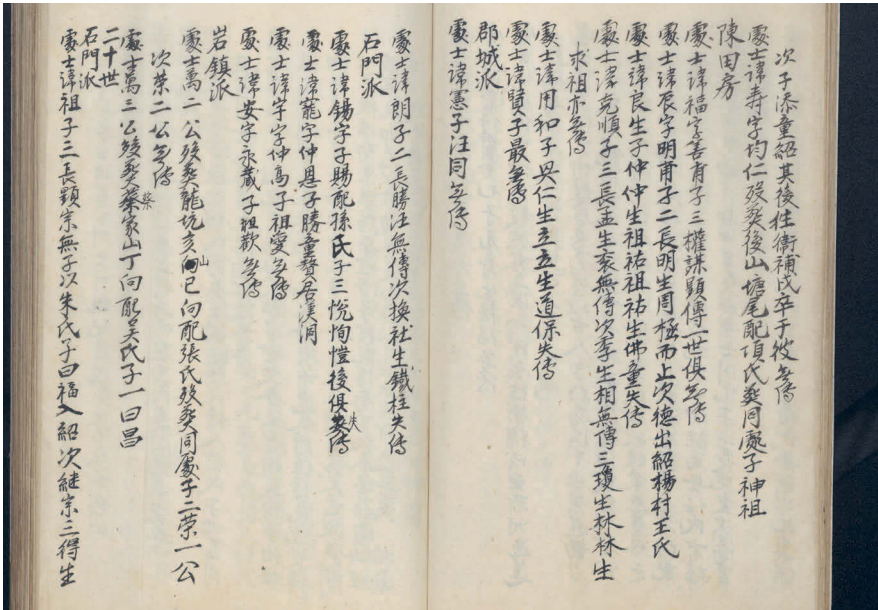 次子添童紹其後往衛補戍卒于彼無傳
處士諱壽字均仁歿葬後山塘尾配項氏葬同處子神祖
陳田房
處士諱福字善甫子三權謀顯傳一世俱無傳
處士諱辰字明甫子二長明生周極而止次德出紹楊村王氏
處士諱良生子仲仲生祖祐祖祐生佛童失傳
處士諱克順子三長孟生袞無傳次季生相無傳三瓊生林林生
求祖亦無傳
處士諱用和子與仁生立立生道保失傳
處士諱賢子最無傳
郡城派
處士諱憲子汪同無傳
處士諱朗子二長勝汪無傳次換社生鐵柱失傳
石門派
處士諱錫字子賜配孫氏子三悅恂愷後俱失傳
處士諱寵字仲恩子勝童贅居溪洞
處士諱宇字仲高子祖愛無傳
處士諱安字永藏子歡無傳
岩鎮派
處士萬二公歿葬龍坑亥山巳向配張氏歿葬同處子二榮一公
次榮二公無傳
處士萬三公歿葬蔡家山丁向配吴氏子一曰昌
二十世
石門派
處士諱祖子三長顯宗無子以朱氏子曰福入紹次継宗三得生